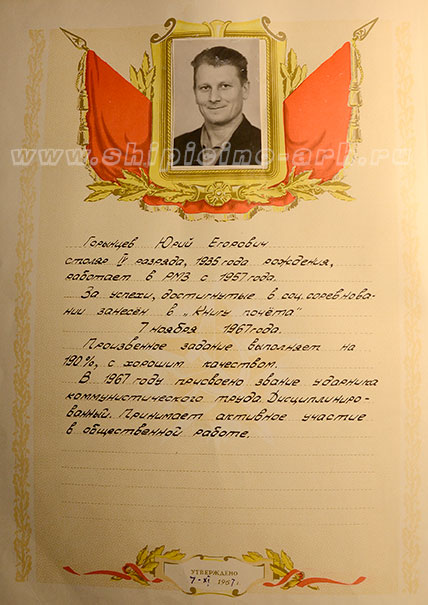 www.shipicino-ark.ru
Горынцев Юрий Егорович
столяр IV разряда, 1935 года рождения,
работает в РМЗ с 1957 года.
За успехи, достигнутые в соц. соревнова-
нии занесён в „Книгу почёта"
7 ноября 1967 года.
Произвенное задание выполняет на
190%, с хорошим качеством.
В 1967 году присвоено звание ударника
коммунистического труда. Дисциплиниро-
ванный. Принимает активное участие
в общественной работе.
УТВЕРЖДЕНО
7-XI 1967 г.